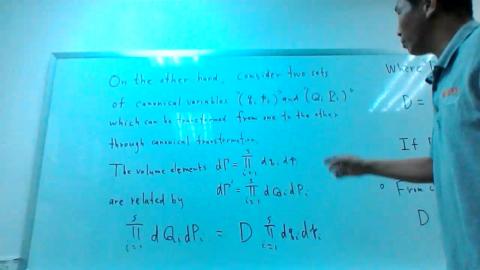 On the other hand, consider two sets
of canonical variables "(qᵢ, pᵢ)" and "(Qᵢ Pᵢ)"
which can be transformed from one to the other
through canonical transformation.
The volume elements dΓ = ∏ˢᵢ₌₁ dqᵢ dpᵢ
are related by dΓ' = ∏ˢᵢ₌₁ dQᵢ dPᵢ
∏ˢᵢ₌₁ dQᵢ dPᵢ = D ∏ˢᵢ₌₁ dqᵢ dpᵢ
Where
D =
If
From
D